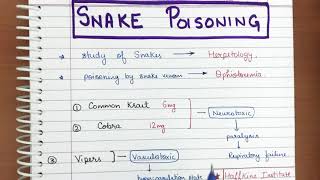 SNAKE POISONING
* study of Snakes → Herpetology.
* poisoning by snake venom → Ophiotoxemia.
① Common Krait 6mg
② Cobra 12mg
Neurotoxic
paralysis
Respiratory failure
③ Vipers → Vasculotoxic
* Haffkine Institute